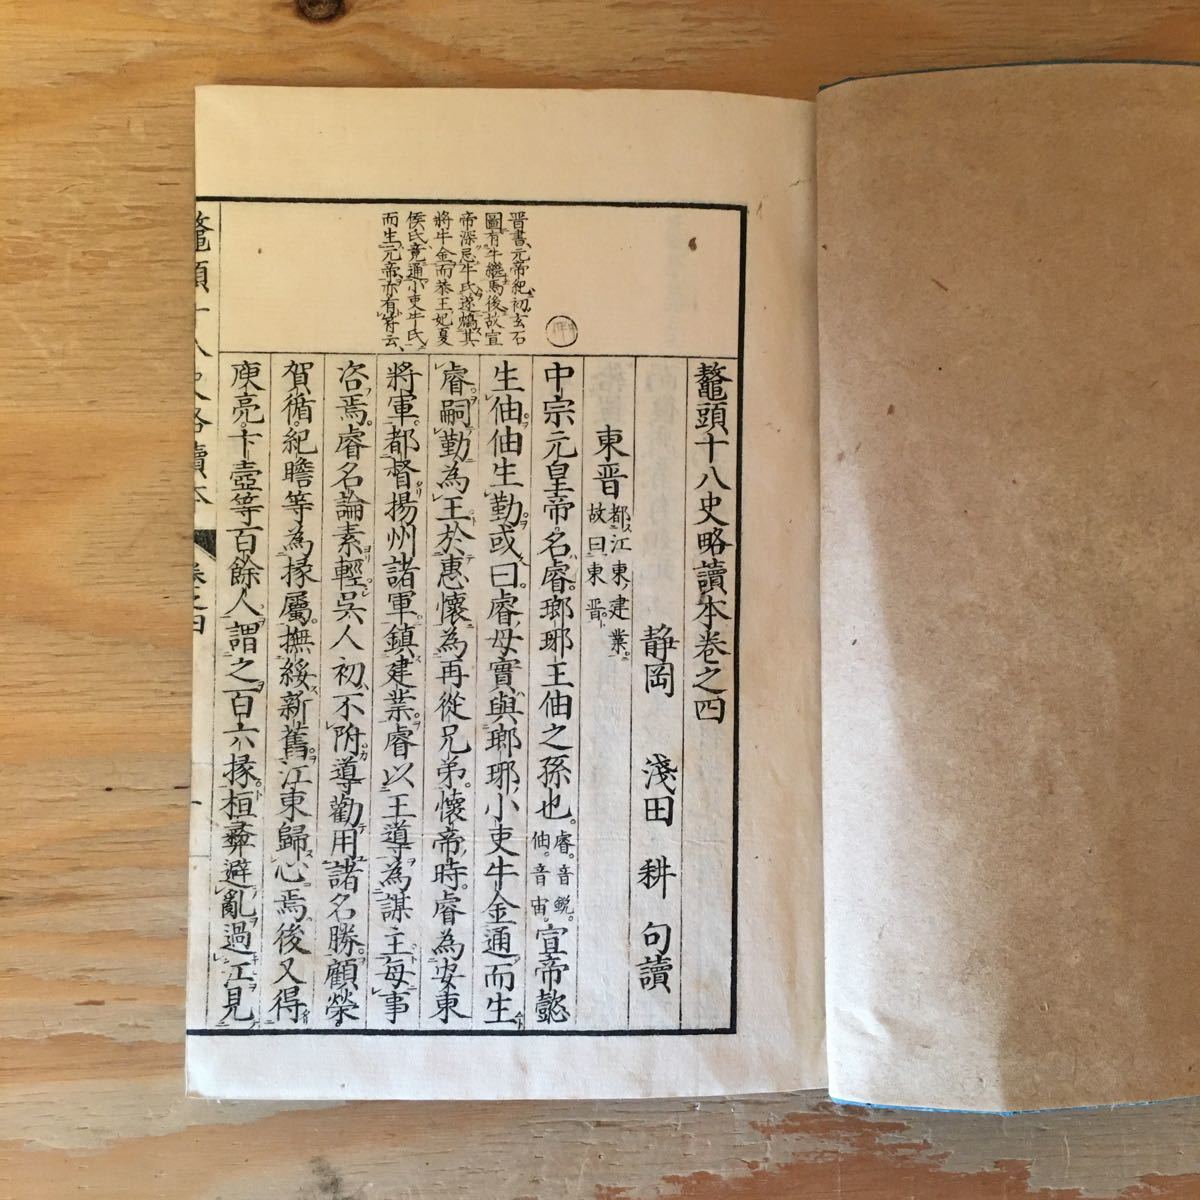 鼇頭十八史略讀本卷之四
静岡 淺田耕句讀
東晋
都江東建業
故曰東晋
中宗元皇帝名睿瑯琊王伷之孫也睿音鋭伷音宙宣帝懿
生伷伷生勤或曰睿母實與瑯琊小吏牛金通而生
睿嗣勤為王於惠懷為再從兄弟懷帝時睿為安東
將軍都督揚州諸軍鎮建業睿以王導為謀主每事
咨焉睿名論素輕吳人初不附導勸用諸名勝顧榮
賀循紀瞻等為掾屬撫綏新舊江東歸心焉後又得
庾亮卞壺等百餘人謂之百六掾桓彝避亂過江見
晋書元帝紀初玄石
圖有牛繼馬後故宣
帝深忌牛氏遂鴆其
將牛金而恭王妃夏
侯氏竟通小吏牛氏
而生元帝亦有符云
鼇頭十八史略讀本 卷之四 一